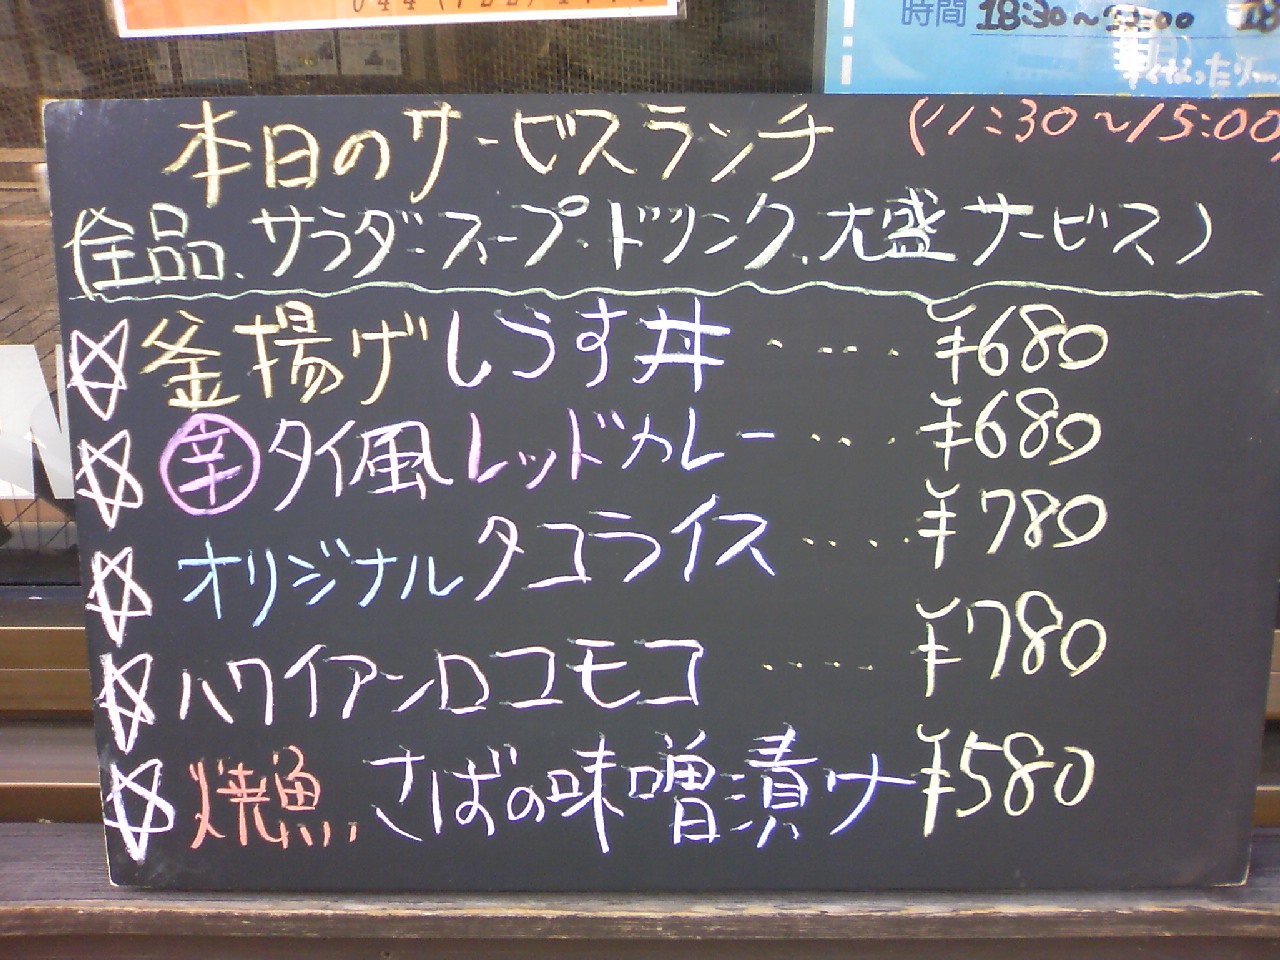 時間 18:30~22:00
本日のサービスランチ (11:30~15:00)
(全品、サラダ・スープ・ドリンク、大盛サービス)
☆釜揚げしらす丼・・・・・¥680
☆辛タイ風レッドカレー・・・・¥680
☆オリジナルタコライス・・・・・¥780
☆ハワイアンロコモコ・・・・・¥780
☆焼魚 さばの味噌漬け¥580